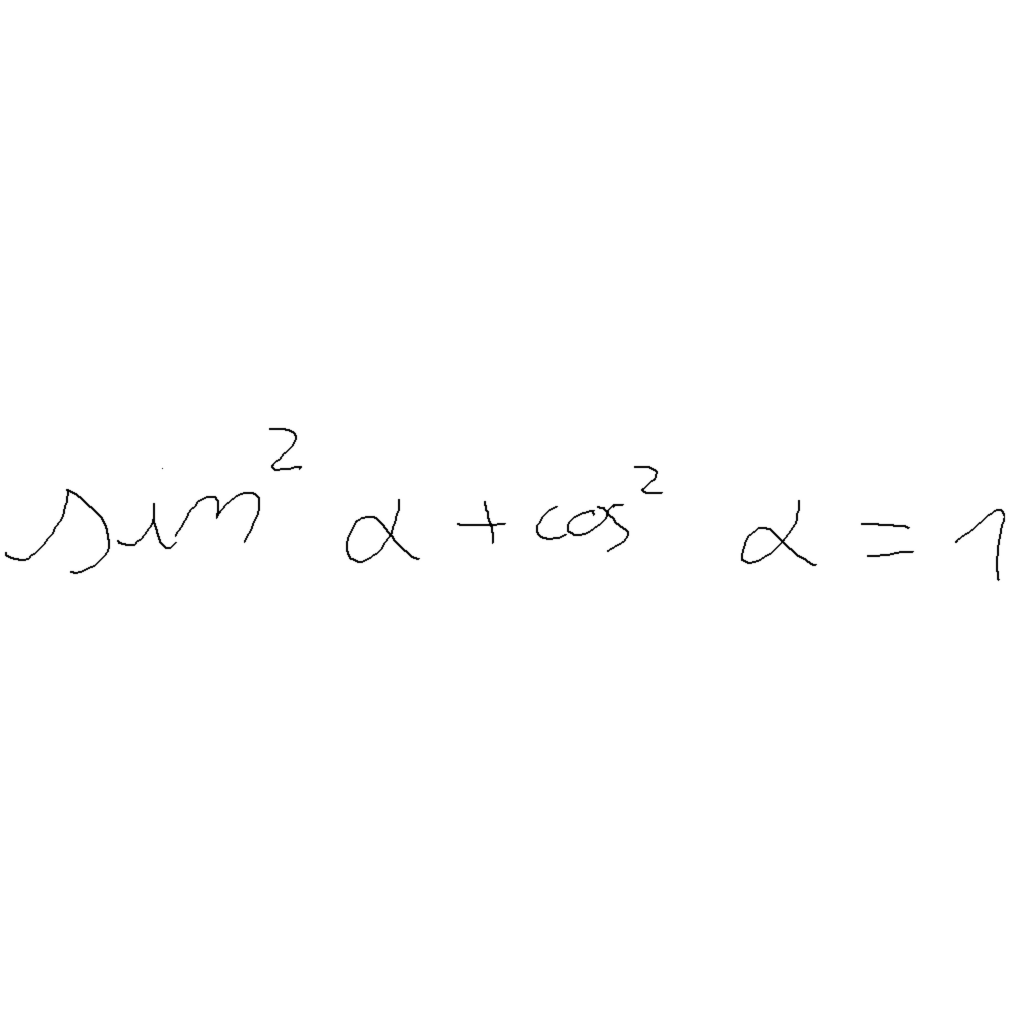 sin² α + cos² α = 1